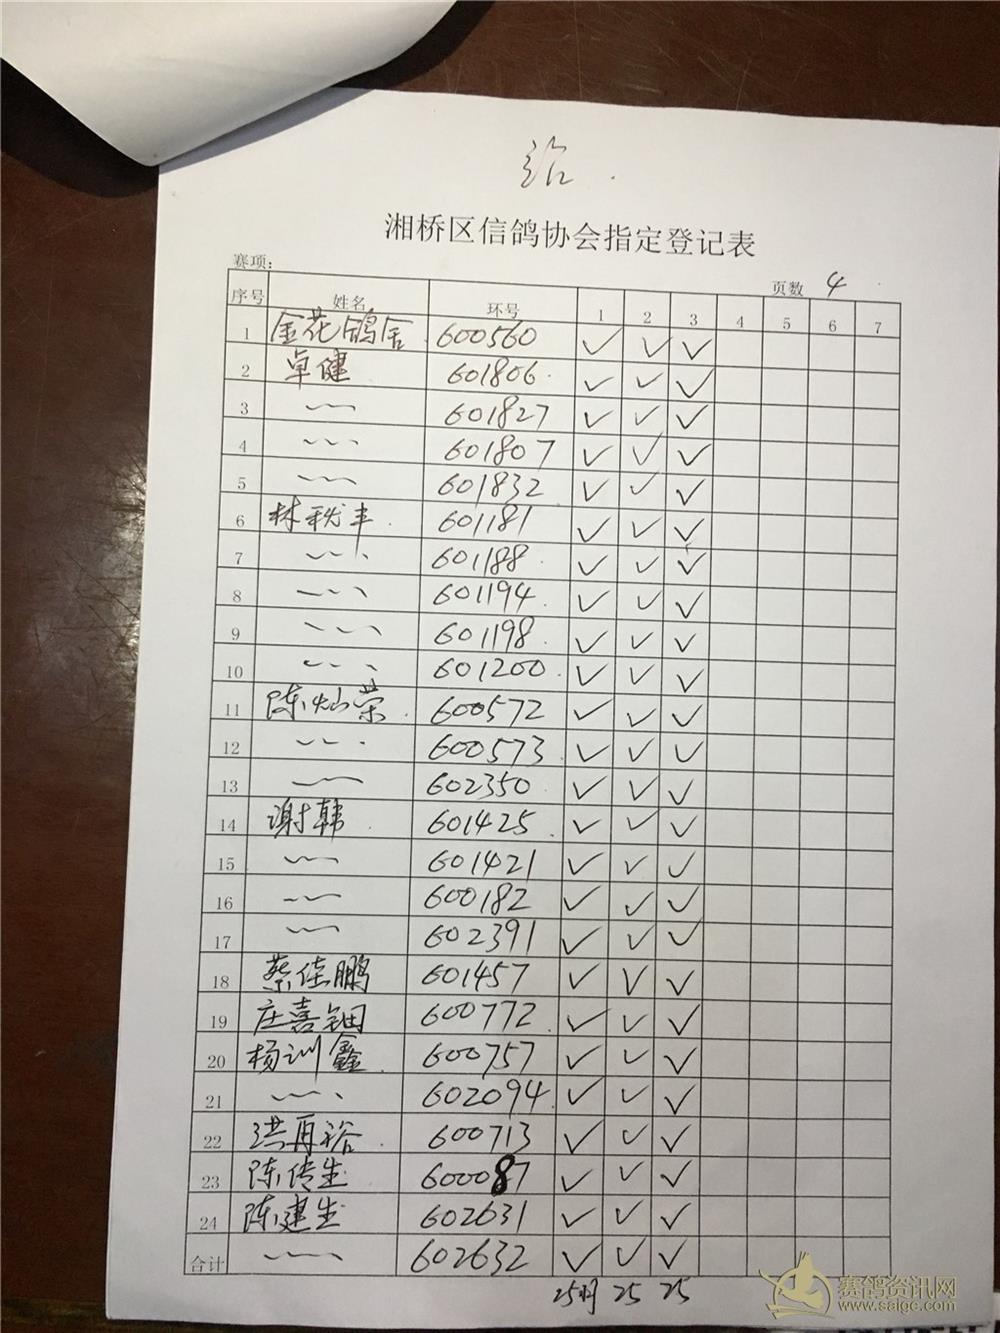 湘桥区信鸽协会指定登记表
赛项： 页数 4
序号 姓名 环号 1 2 3 4 5 6 7
1 金花鸽舍 600560 ✓ ✓ ✓
2 卓健 601806 ✓ ✓ ✓
3 601827 ✓ ✓ ✓
4 601807 ✓ ✓ ✓
5 601832 ✓ ✓ ✓
6 林秋丰 601181 ✓ ✓ ✓
7 601188 ✓ ✓ ✓
8 601194 ✓ ✓ ✓
9 601198 ✓ ✓ ✓
10 601200 ✓ ✓ ✓
11 陈灿荣 600572 ✓ ✓ ✓
12 600573 ✓ ✓ ✓
13 602350 ✓ ✓ ✓
14 谢韩 601425 ✓ ✓ ✓
15 601421 ✓ ✓ ✓
16 600182 ✓ ✓ ✓
17 602391 ✓ ✓ ✓
18 蔡佳鹏 601457 ✓ ✓ ✓
19 庄喜钿 600772 ✓ ✓ ✓
20 杨训鑫 600757 ✓ ✓ ✓
21 602094 ✓ ✓ ✓
22 洪再裕 600713 ✓ ✓ ✓
23 陈传生 600087 ✓ ✓ ✓
24 陈建生 602631 ✓ ✓ ✓
合计 602632 ✓ ✓ ✓
25 25 25
赛鸽资讯网
www.saigc.com